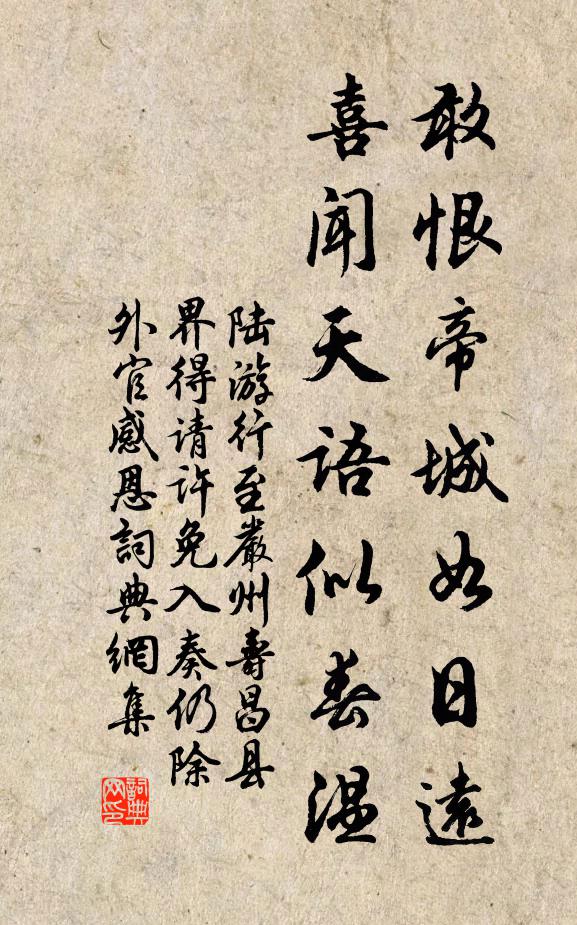 敢恨帝城如日遠
喜聞天語似春温
陆游行至嚴州壽昌县
界得请许免入奏仍除
外官感恩詞典網集
詞典网印